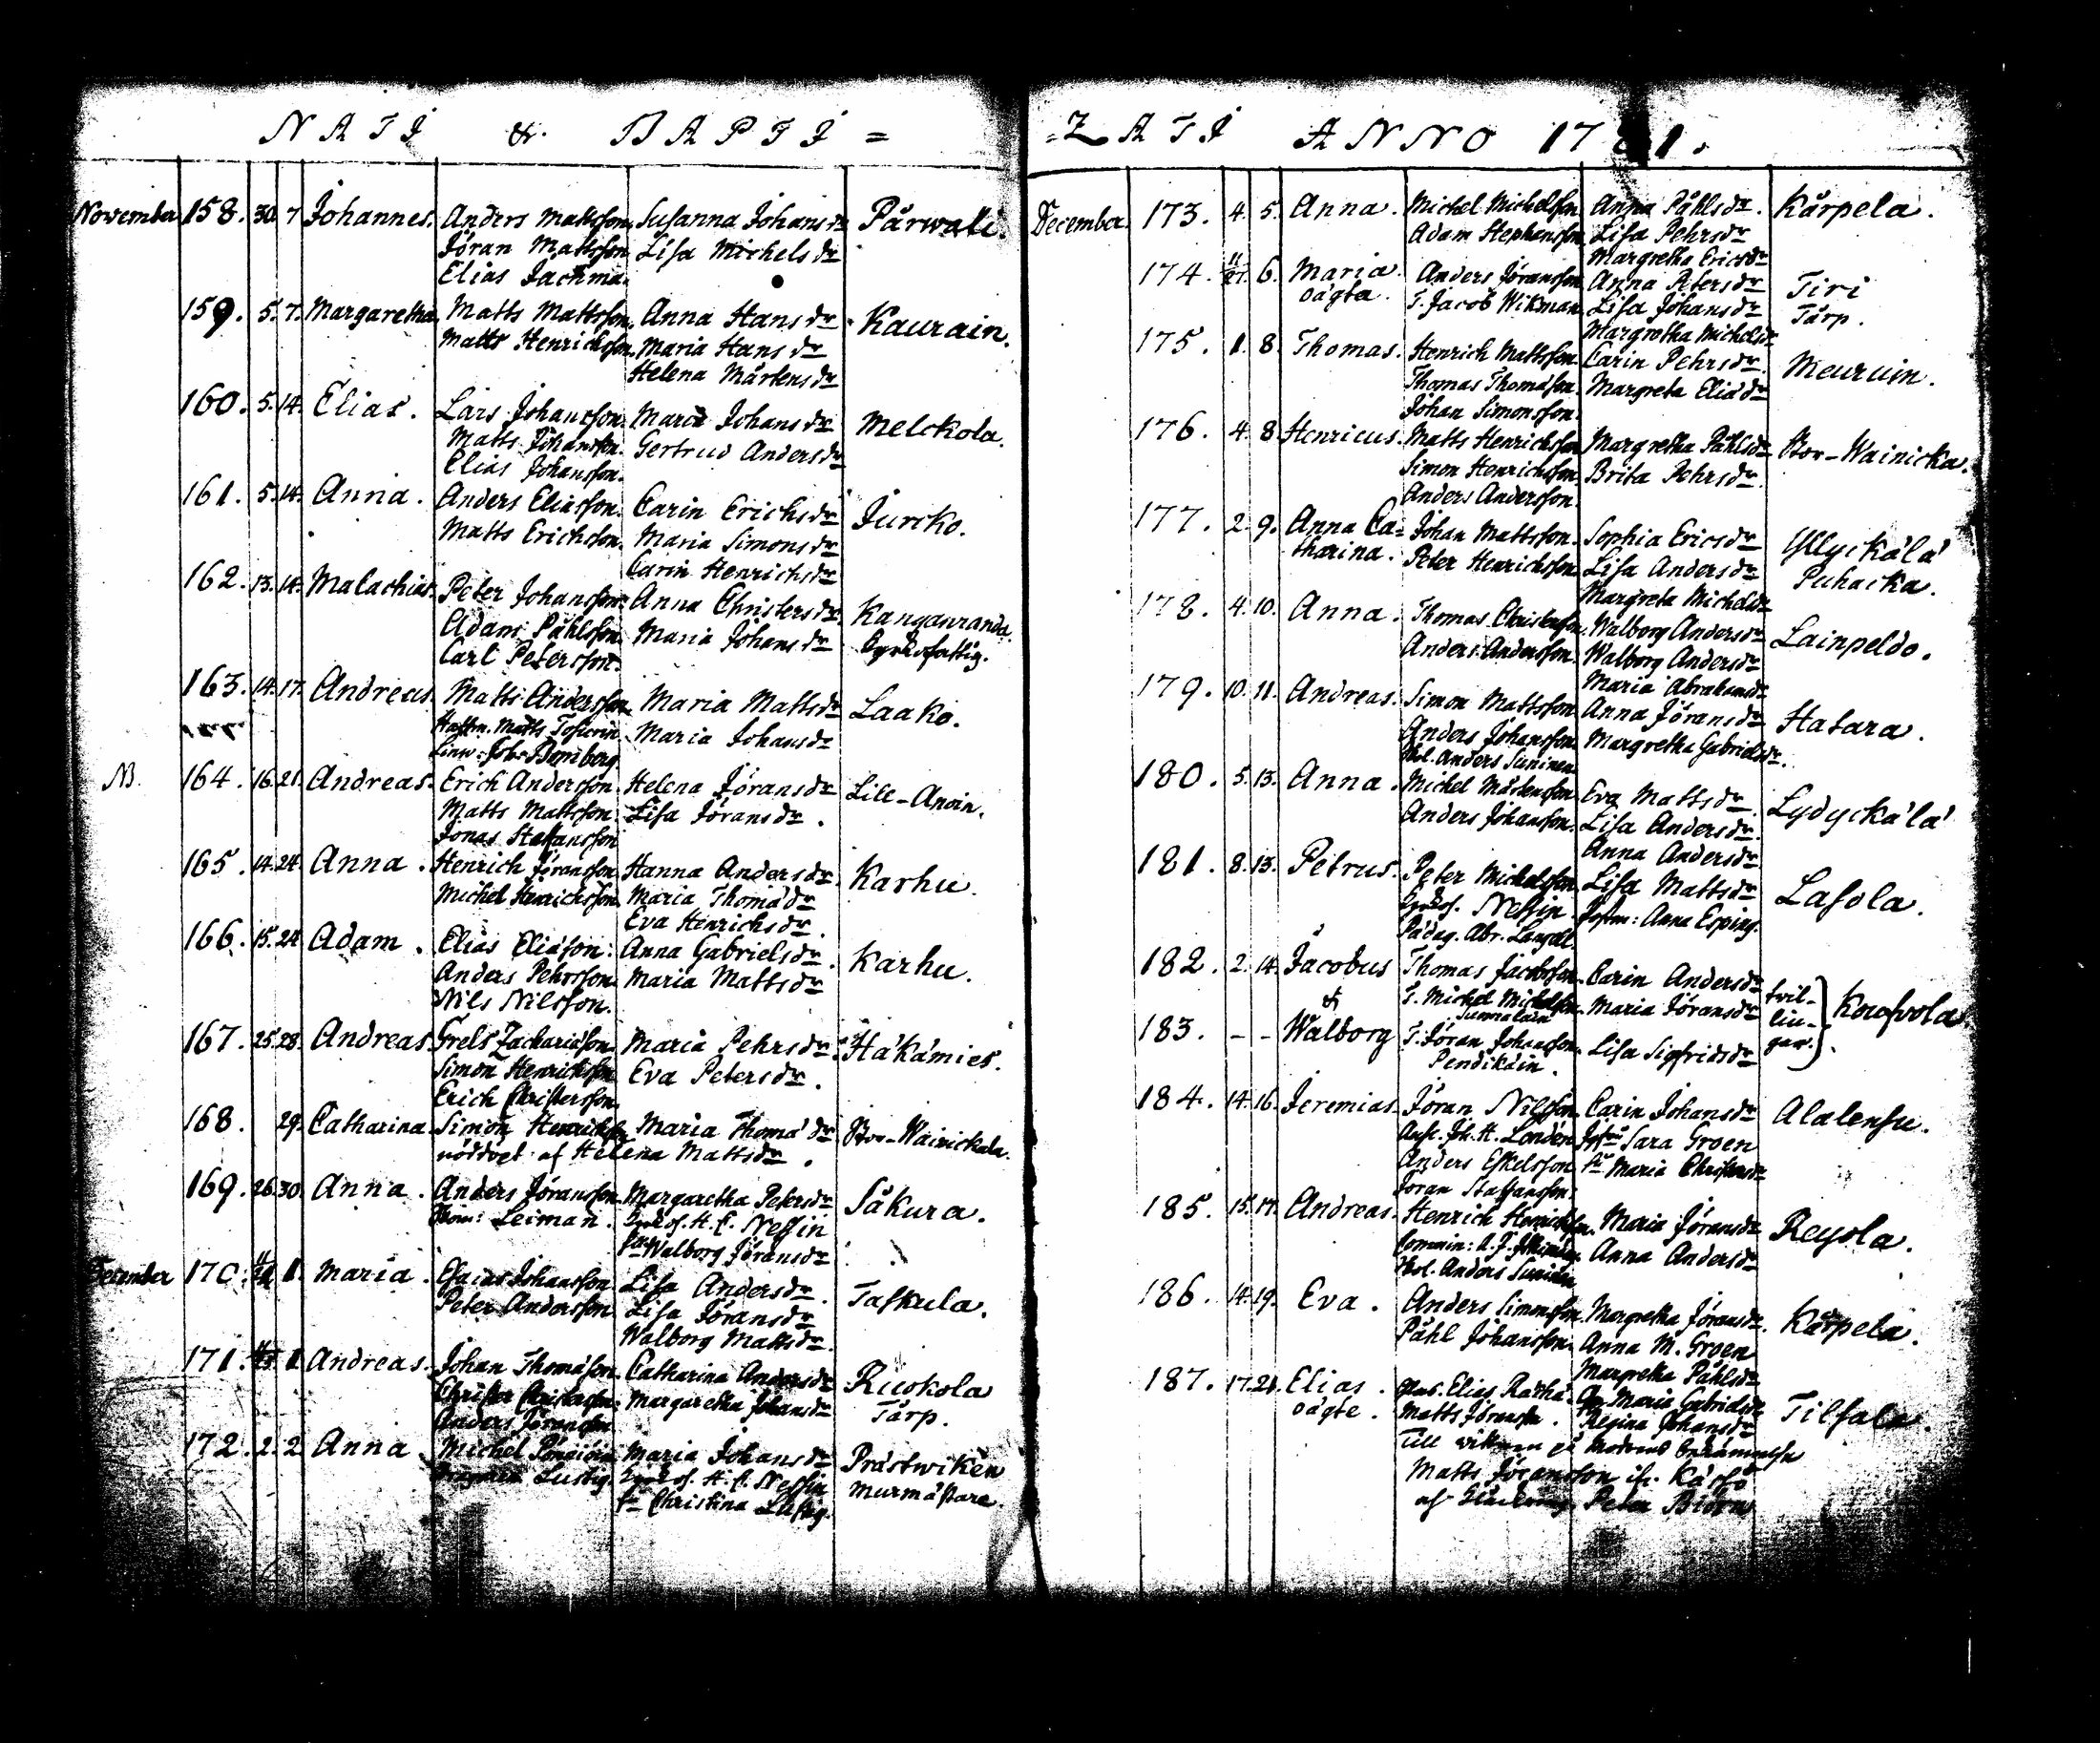 NATI & BAPTI =
November 158. 30. 7 Johannes. Anders Mattsson. Susanna Johansdr Pärwali.
Jöran Mattsson. Lisa Michelsdr
Elias Jachma.
159. 5. 7. Margaretha. Matts Mattsson. Anna Hansdr. Kaurain.
Matts Henrichsson. Maria Hansdr
Helena Mårtensdr
160. 5. 14. Elias. Lars Johansson. Maria Johansdr Melckola.
Matts Johansson. Gertrud Andersdr
Elias Johansson.
161. 5. 14. Anna. Anders Eliasson. Carin Erichsdr Jurcko.
Matts Erichsson. Maria Simonsdr
Carin Henrichsdr
162. 13. 14. Malachias. Peter Johansson. Anna Christersdr Kanganranda.
Adam Påhlsson. Maria Johansdr Kyrkofattig.
Carl Petersson.
163. 14. 17. Andreas. Matts Andersson. Maria Mattsdr Laako.
Matts Maria Johansdr
Bomberg
NB. 164. 16. 21. Andreas. Erich Andersson. Helena Jöransdr Lill-Anoin.
Matts Mattsson. Lisa Jöransdr.
Jonas Staffansson
165. 14. 24. Anna. Henrich Jöransson. Hanna Andersdr. Karhu.
Michel Henrichsson. Maria Thomådr
Eva Henrichsdr.
166. 15. 24 Adam. Elias Eliåson. Anna Gabrielsdr. Karhu.
Anders Pehrsson. Maria Mattsdr
Nils Nilsson.
167. 25. 28. Andreas. Grels Zachariåson. Maria Pehrsdr. Häkämies.
Simon Henrichsson Eva Petersdr.
Erich Christersson
168. 29. Catharina. Simon Henrichsson Maria Thomådr Stor-Wainickala.
nöddöpt af Helena Mattsdr.
169. 26. 30. Anna. Anders Jöransson. Margaretha Petersdr Säkura.
Leiman. H. C. Nessin
Walborg Jöransdr
December 170. 1. Maria. Esaias Johansson Lisa Andersdr. Taskula.
Peter Andersson Lisa Jöransdr
Walborg Mattsdr.
171. 1. Andreas. Johan Thomåson. Catharina Andersdr Ruokola
Christer Christersson. Margaretha Johansdr Tårp.
Anders Jöransson
172. 2. 2 Anna. Michel Maria Johansdr Prästwiken
Lustig. H. C. Nessin Murmästare.
Christina Lustig.
=ZATI ANNO 1781.
December. 173. 4. 5. Anna. Michel Michelsson Anna Påhlsdr. Kårpela.
Adam Stephansson. Lisa Pehrsdr
Margretha Ericsdr
174. 11/27. 6. Maria Anders Jöransson. Anna Petersdr Tiri
oägta. S. Jacob Wikman. Lisa Johansdr Tårp.
Margretha Michelsdr
175. 1. 8. Thomas. Henrich Mattsson. Carin Pehrsdr. Meuruin.
Thomas Thomåson. Margreta Eliådr
Johan Simonsson.
176. 4. 8. Henricus. Matts Henrichsson Margretha Påhlsdr Stor-Wainicka.
Simon Henrichsson. Brita Pehrsdr.
Anders Andersson.
177. 2. 9. Anna Ca= Johan Mattsson. Sophia Ericsdr Yllyckälä
tharina. Peter Henrichsson. Lisa Andersdr Puhacka.
Margreta Michelsdr
178. 4. 10. Anna. Thomas Christersson. Walborg Andersdr Lainpeldo.
Anders Andersson. Walborg Andersdr
Maria Abrahamsdr
179. 10. 11. Andreas. Simon Mattsson. Anna Jöransdr Hatara.
Anders Johansson. Margretha Gabrielsdr.
Anders Suninen
180. 5. 13. Anna. Michel Mårtensson Eva Mattsdr. Lydyckälä
Anders Johansson. Lisa Andersdr
Anna Andersdr
181. 8. 13. Petrus. Peter Michelsson. Lisa Mattsdr Lasola.
Nessin Anna Esping.
Pädag. Abr.
182. 2. 14. Jacobus Thomas Jacobsson. Carin Andersdr tvil- Kousvola
& S. Michel Michelsson. Maria Jöransdr lin-
183. - - Walborg S. Jöran Johansson. Lisa Sigfridsdr gar.
Pendikäin.
184. 14. 16. Jeremias. Jöran Nilsson. Carin Johansdr Alalensu.
Joh. H. Londén Sara Groen
Anders Eskelsson Maria Christersdr
Jöran Staffansson.
185. 15. 17. Andreas. Henrich Henrichsson. Maria Jöransdr Reyola.
Anna Andersdr
Anders Suninen
186. 14. 19. Eva. Anders Simonsson. Margretha Jöransdr. Kårpela.
Påhl Johansson. Anna M. Groen
Margretha Påhlsdr
187. 17. 21. Elias. Elias Maria Gabrielsdr Tilsala.
oägte. Matts Jöransson. Regina Johansdr
Till
Matts Jöransson
af Peter Biörn